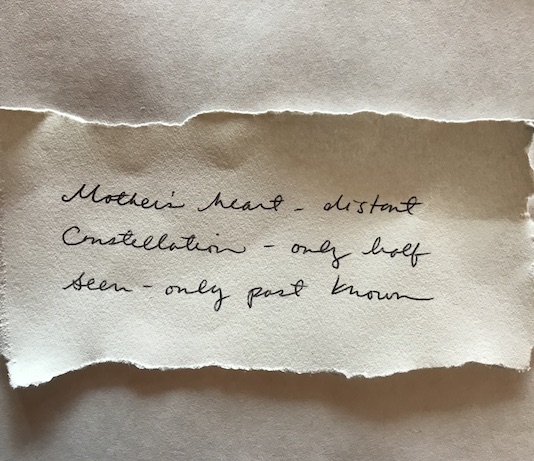 Mother's heart - distant
Constellation - only half
seen - only past known